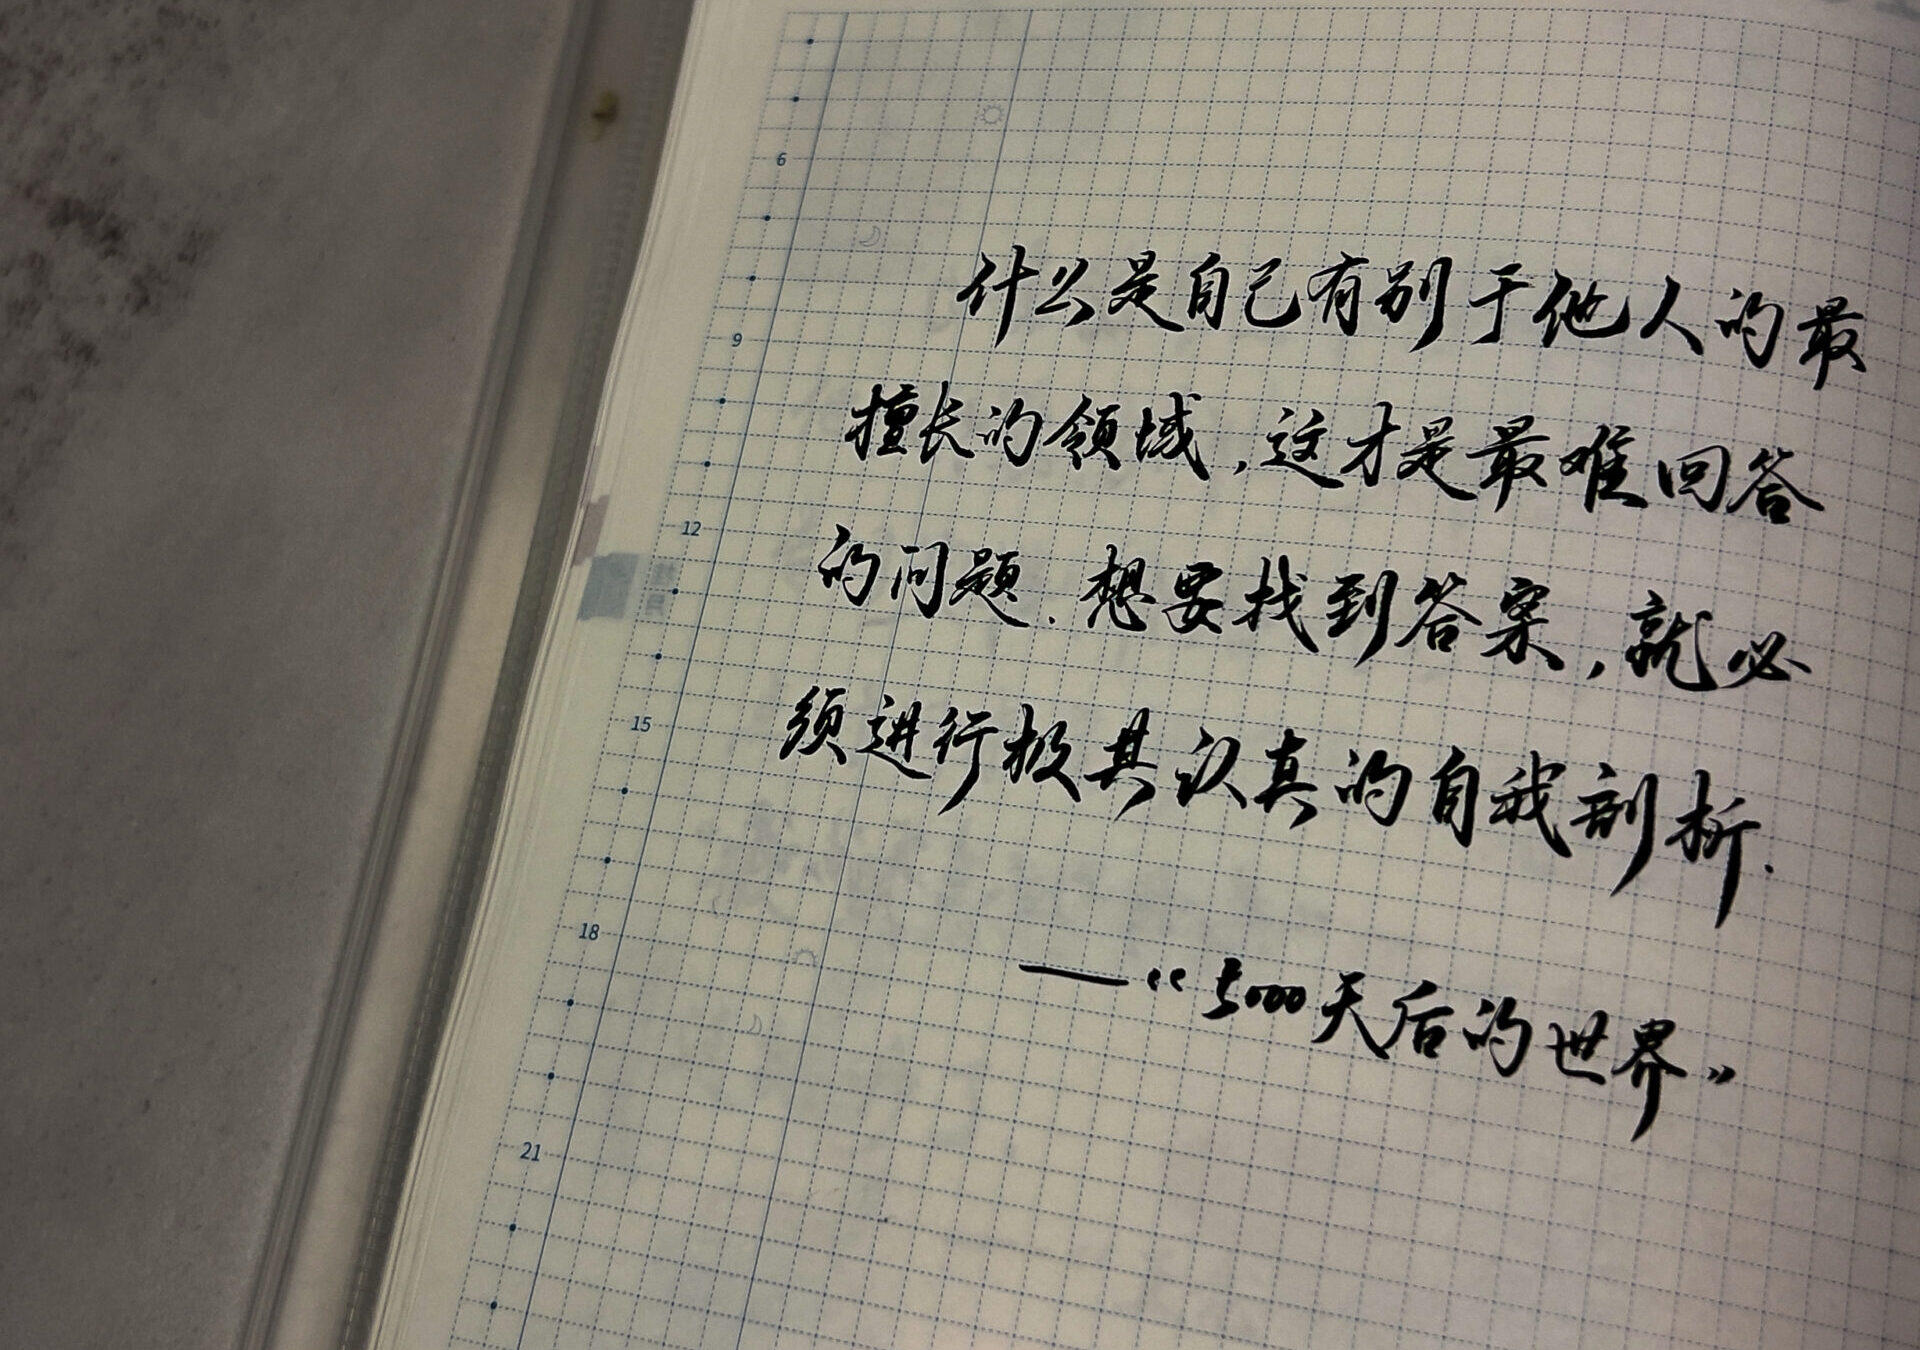 6
什么是自己有别于他人的最
9
擅长的领域,这才是最难回答
12
的问题.想要找到答案,就必
15
须进行极其认真的自我剖析.
18
—“5000天后的世界”
21